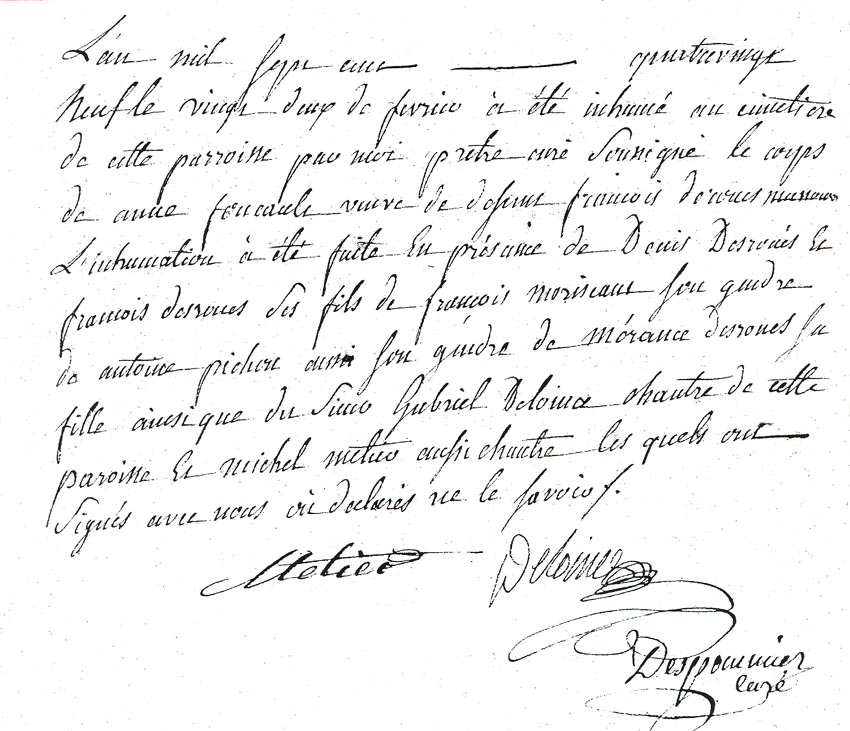 L'an mil sept cent ——— quatrevingt
Neuf le vingt deux de fevrier à été inhumé au cimetiere
de cette parroisse par moi prêtre curé Soussigné le corps
de anne foucault veuve de defunt françois deroues
L'inhumation à été faite En présance de Denis Desroués Et
françois desroues Ses fils de françois moriceaut Son gendre
de antoine pichon aussi Son géndre de mérance desroues Sa
fille ainsi que du Sieur Gabriel Deloince chantre de cette
paroisse Et michel metier aussi chantre les quels ont
Signés avec nous où declarés ne le savoir /.
Metier Deloince
Despommier
curé